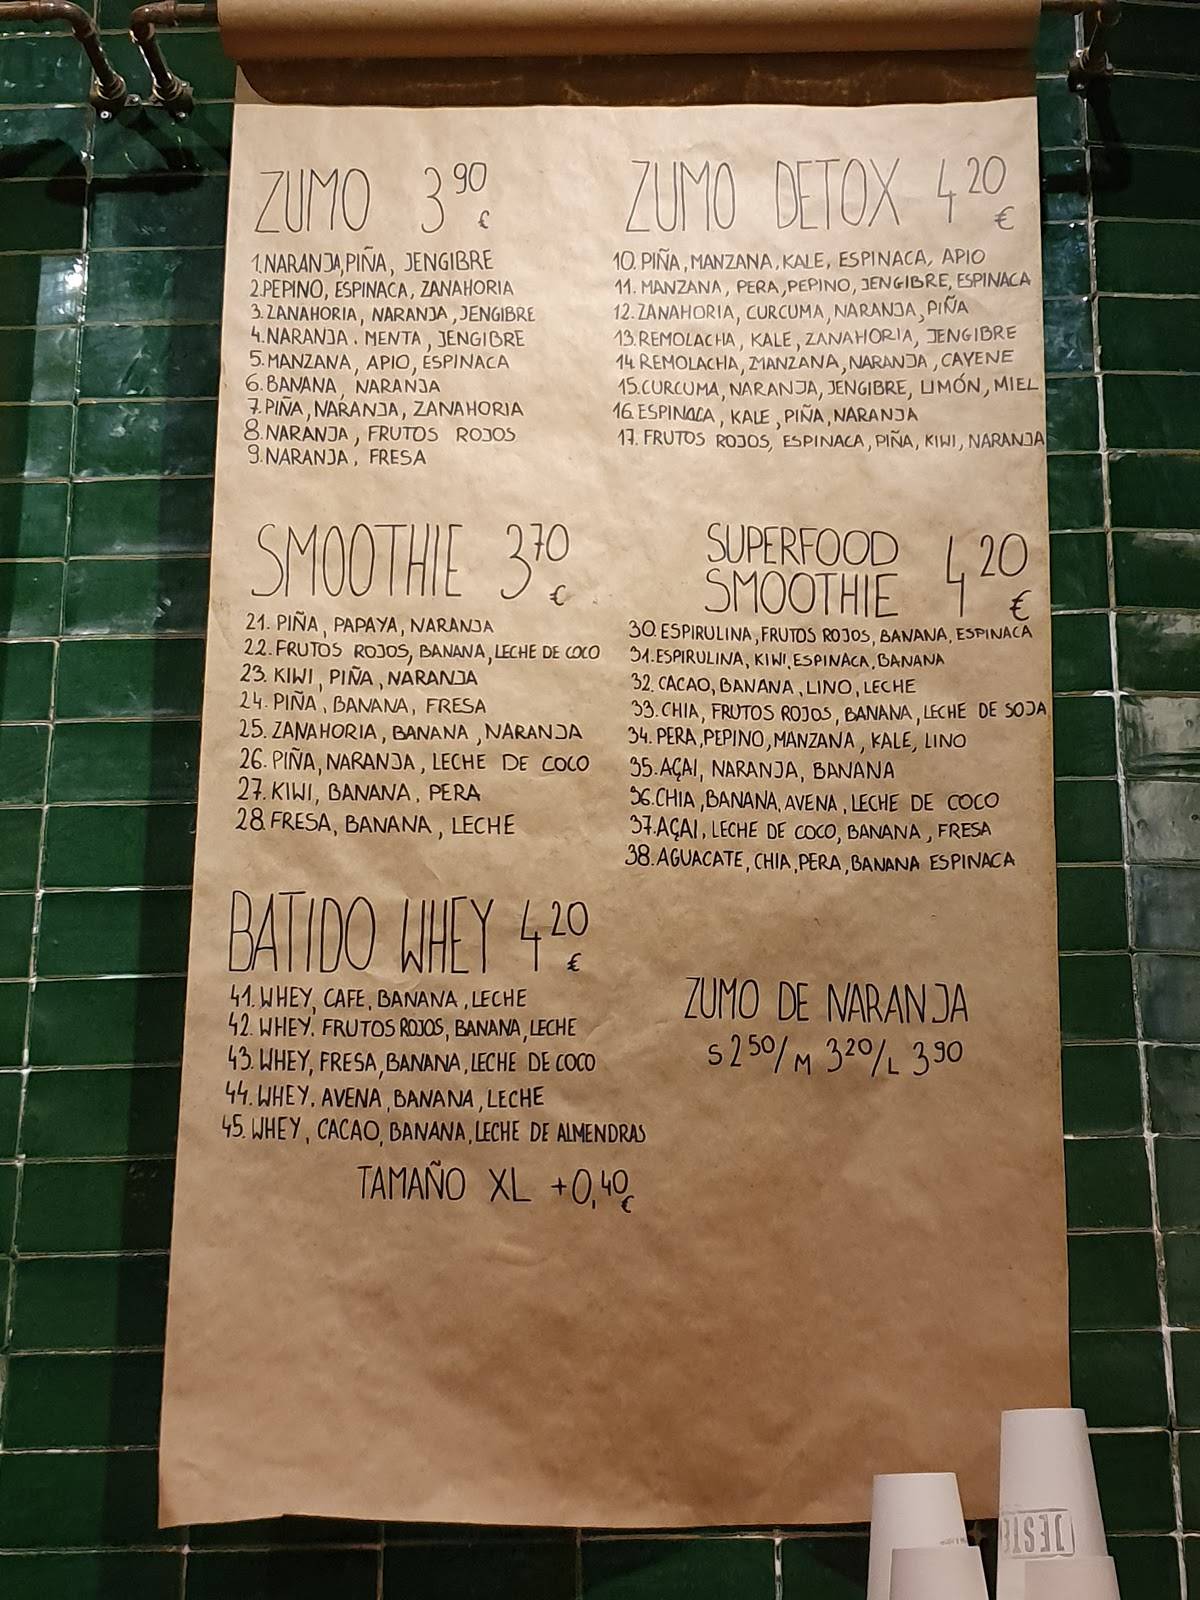 ZUMO 3,90 €
1.NARANJA,PIÑA, JENGIBRE
2.PEPINO, ESPINACA, ZANAHORIA
3.ZANAHORIA, NARANJA, JENGIBRE
4.NARANJA. MENTA, JENGIBRE
5.MANZANA, APIO, ESPINACA
6.BANANA, NARANJA
7.PIÑA, NARANJA, ZANAHORIA
8.NARANJA, FRUTOS ROJOS
9.NARANJA, FRESA
ZUMO DETOX 4 20 €
10. PIÑA, MANZANA, KALE, ESPINACA, APIO
11. MANZANA, PERA, PEPINO, JENGIBRE, ESPINACA
12. ZANAHORIA, CURCUMA, NARANJA, PIÑA
13. REMOLACHA, KALE, ZANAHORIA, JENGIBRE
14 REMOLACHA, MANZANA, NARANJA, CAYENE
15.CURCUMA, NARANJA, JENGIBRE, LIMÓN, MIEL
16. ESPINACA, KALE, PIÑA, NARANJA
17. FRUTOS ROJOS, ESPINACA, PIÑA, KIWI, NARANJA
SMOOTHIE 3 70 €
21. PIÑA, PAPAYA, NARANJA
22. FRUTOS ROJOS, BANANA, LECHE DE COCO
23. KIWI, PIÑA, NARANJA
24. PIÑA, BANANA, FRESA
25. ZANAHORIA, BANANA, NARANJA
26. PIÑA, NARANJA, LECHE DE COCO
27. KIWI, BANANA, PERA
28. FRESA, BANANA, LECHE
SUPERFOOD
SMOOTHIE 4 20 €
30. ESPIRULINA, FRUTOS ROJOS, BANANA, ESPINACA
31. ESPIRULINA, KIWI, ESPINACA, BANANA
32. CACAO, BANANA, LINO, LECHE
33. CHIA, FRUTOS ROJOS, BANANA, LECHE DE SOJA
34. PERA, PEPINO, MANZANA, KALE, LINO
35. AÇAI, NARANJA, BANANA
36. CHIA, BANANA, AVENA, LECHE DE COCO
37. AÇAI, LECHE DE COCO, BANANA, FRESA
38. AGUACATE, CHIA, PERA, BANANA ESPINACA
BATIDO WHEY 4 20 €
41. WHEY, CAFE, BANANA, LECHE
42. WHEY. FRUTOS ROJOS, BANANA, LECHE
43. WHEY, FRESA, BANANA, LECHE DE COCO
44. WHEY. AVENA, BANANA, LECHE
45. WHEY, CACAO, BANANA, LECHE DE ALMENDRAS
TAMAÑO XL +0,40 €
ZUMO DE NARANJA
S 2 50/M 3 20/L 3 90